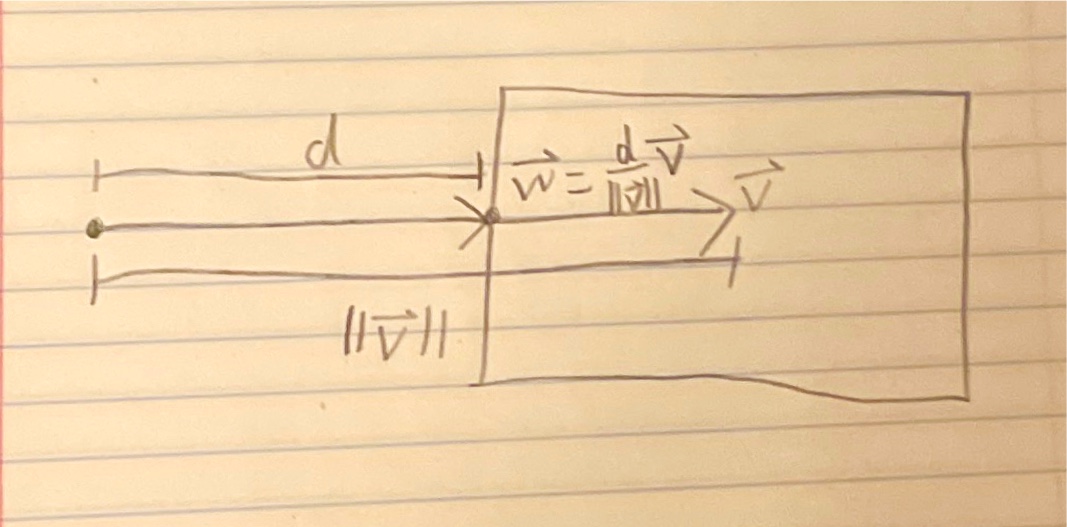 d
w⃗ = d/||v⃗|| v⃗
v⃗
||v⃗||